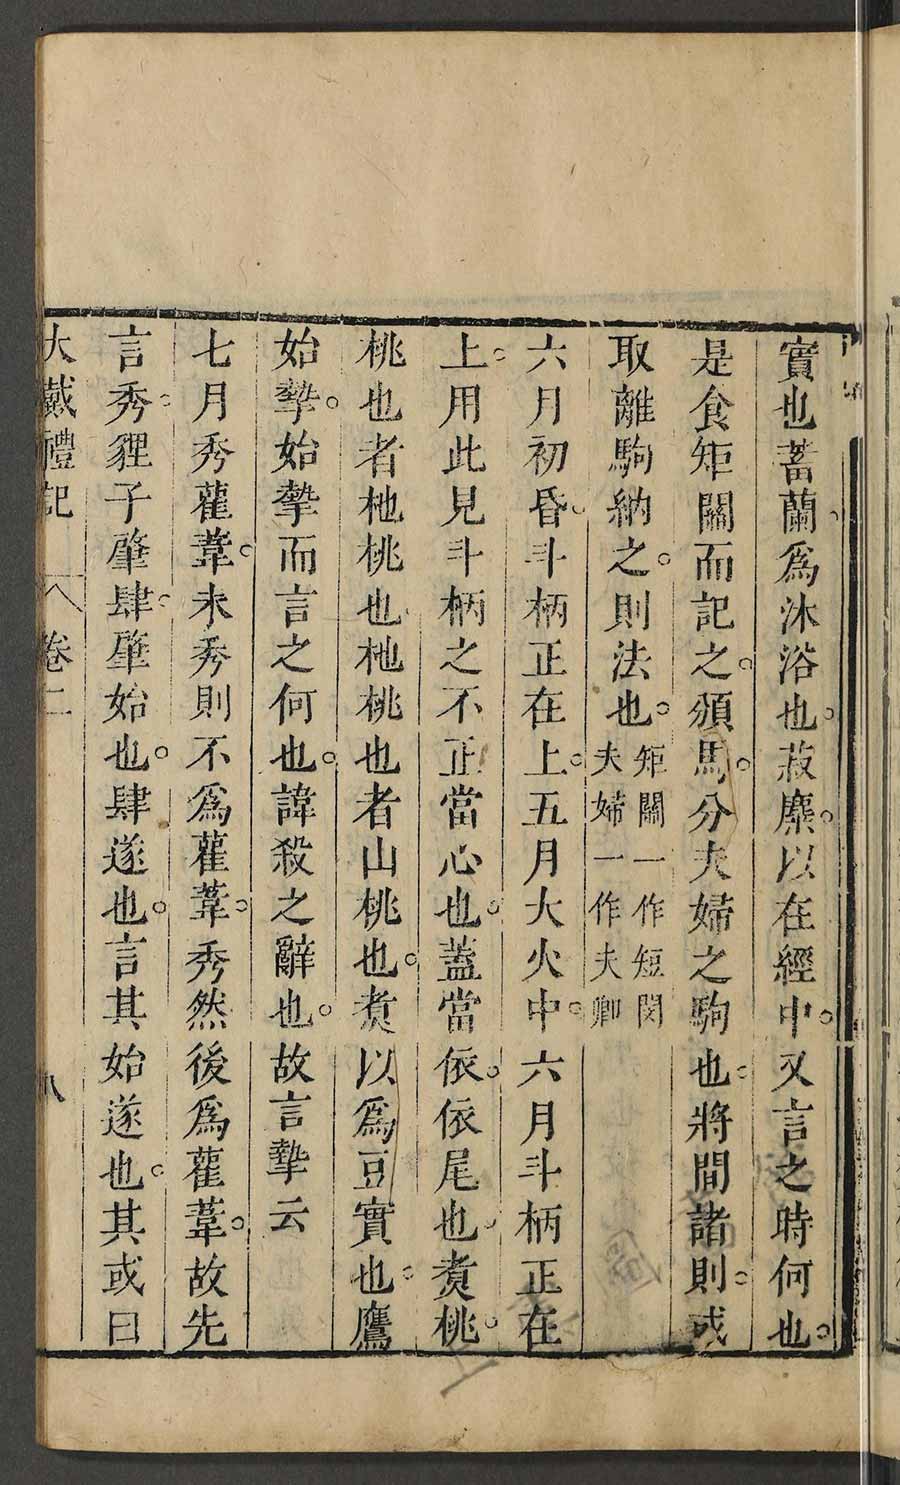 實也蓄蘭爲沐浴也菽糜以在經中又言之時何也
是食矩關而記之頒馬分夫婦之駒也將間諸則或
取離駒納之則法也矩關一作短閔
夫婦一作夫卿
六月初昏斗柄正在上五月大火中六月斗柄正在
上用此見斗柄之不正當心也蓋當依依尾也煑桃
桃也者杝桃也杝桃也者山桃也煑以爲豆實也鷹
始摯始摯而言之何也諱殺之辭也故言摯云
七月秀雚葦未秀則不爲雚葦秀然後爲雚葦故先
言秀貍子肇肆肇始也肆遂也言其始遂也其或曰
大戴禮記 卷二 八